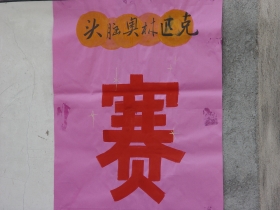 头脑奥林匹克
赛